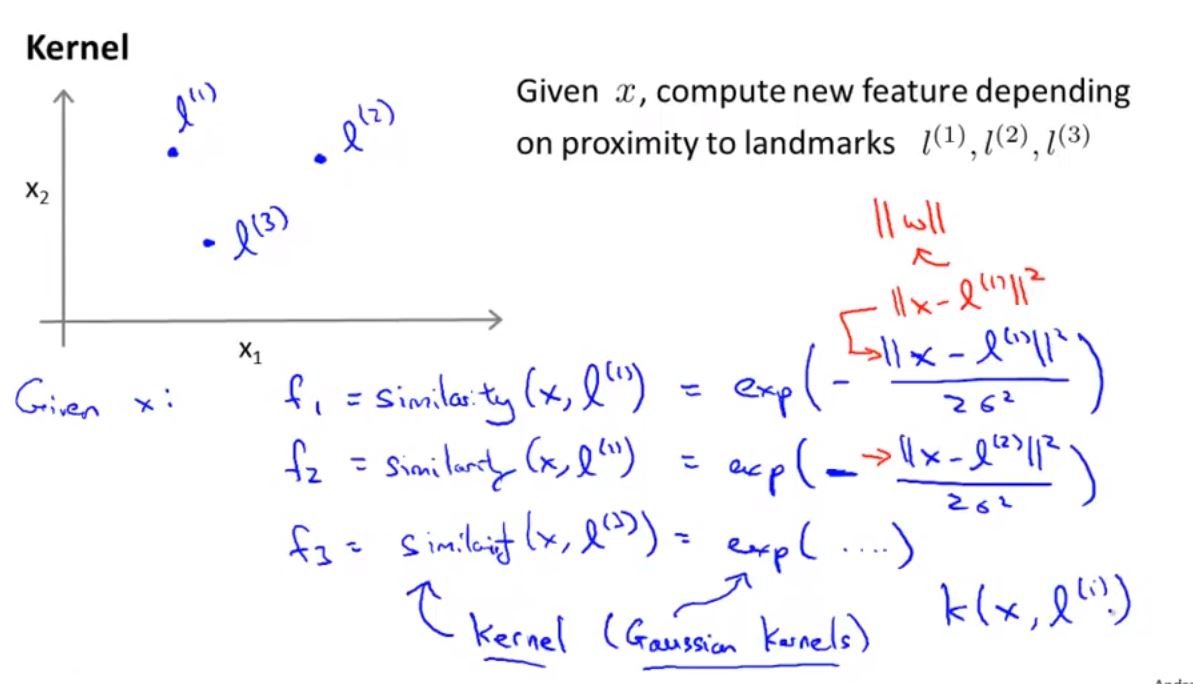 Kernel
Given x, compute new feature depending
on proximity to landmarks l^(1), l^(2), l^(3)
l^(1)
l^(2)
x₂
l^(3)
x₁
||w||
||x - l^(1)||²
Given x: f₁ = similarity (x, l^(1)) = exp(- ||x - l^(1)||² / 2σ²)
f₂ = similarity (x, l^(1)) = exp(- ||x - l^(2)||² / 2σ²)
f₃ = similarity (x, l^(3)) = exp( .... )
kernel (Gaussian kernels)
k(x, l^(i))